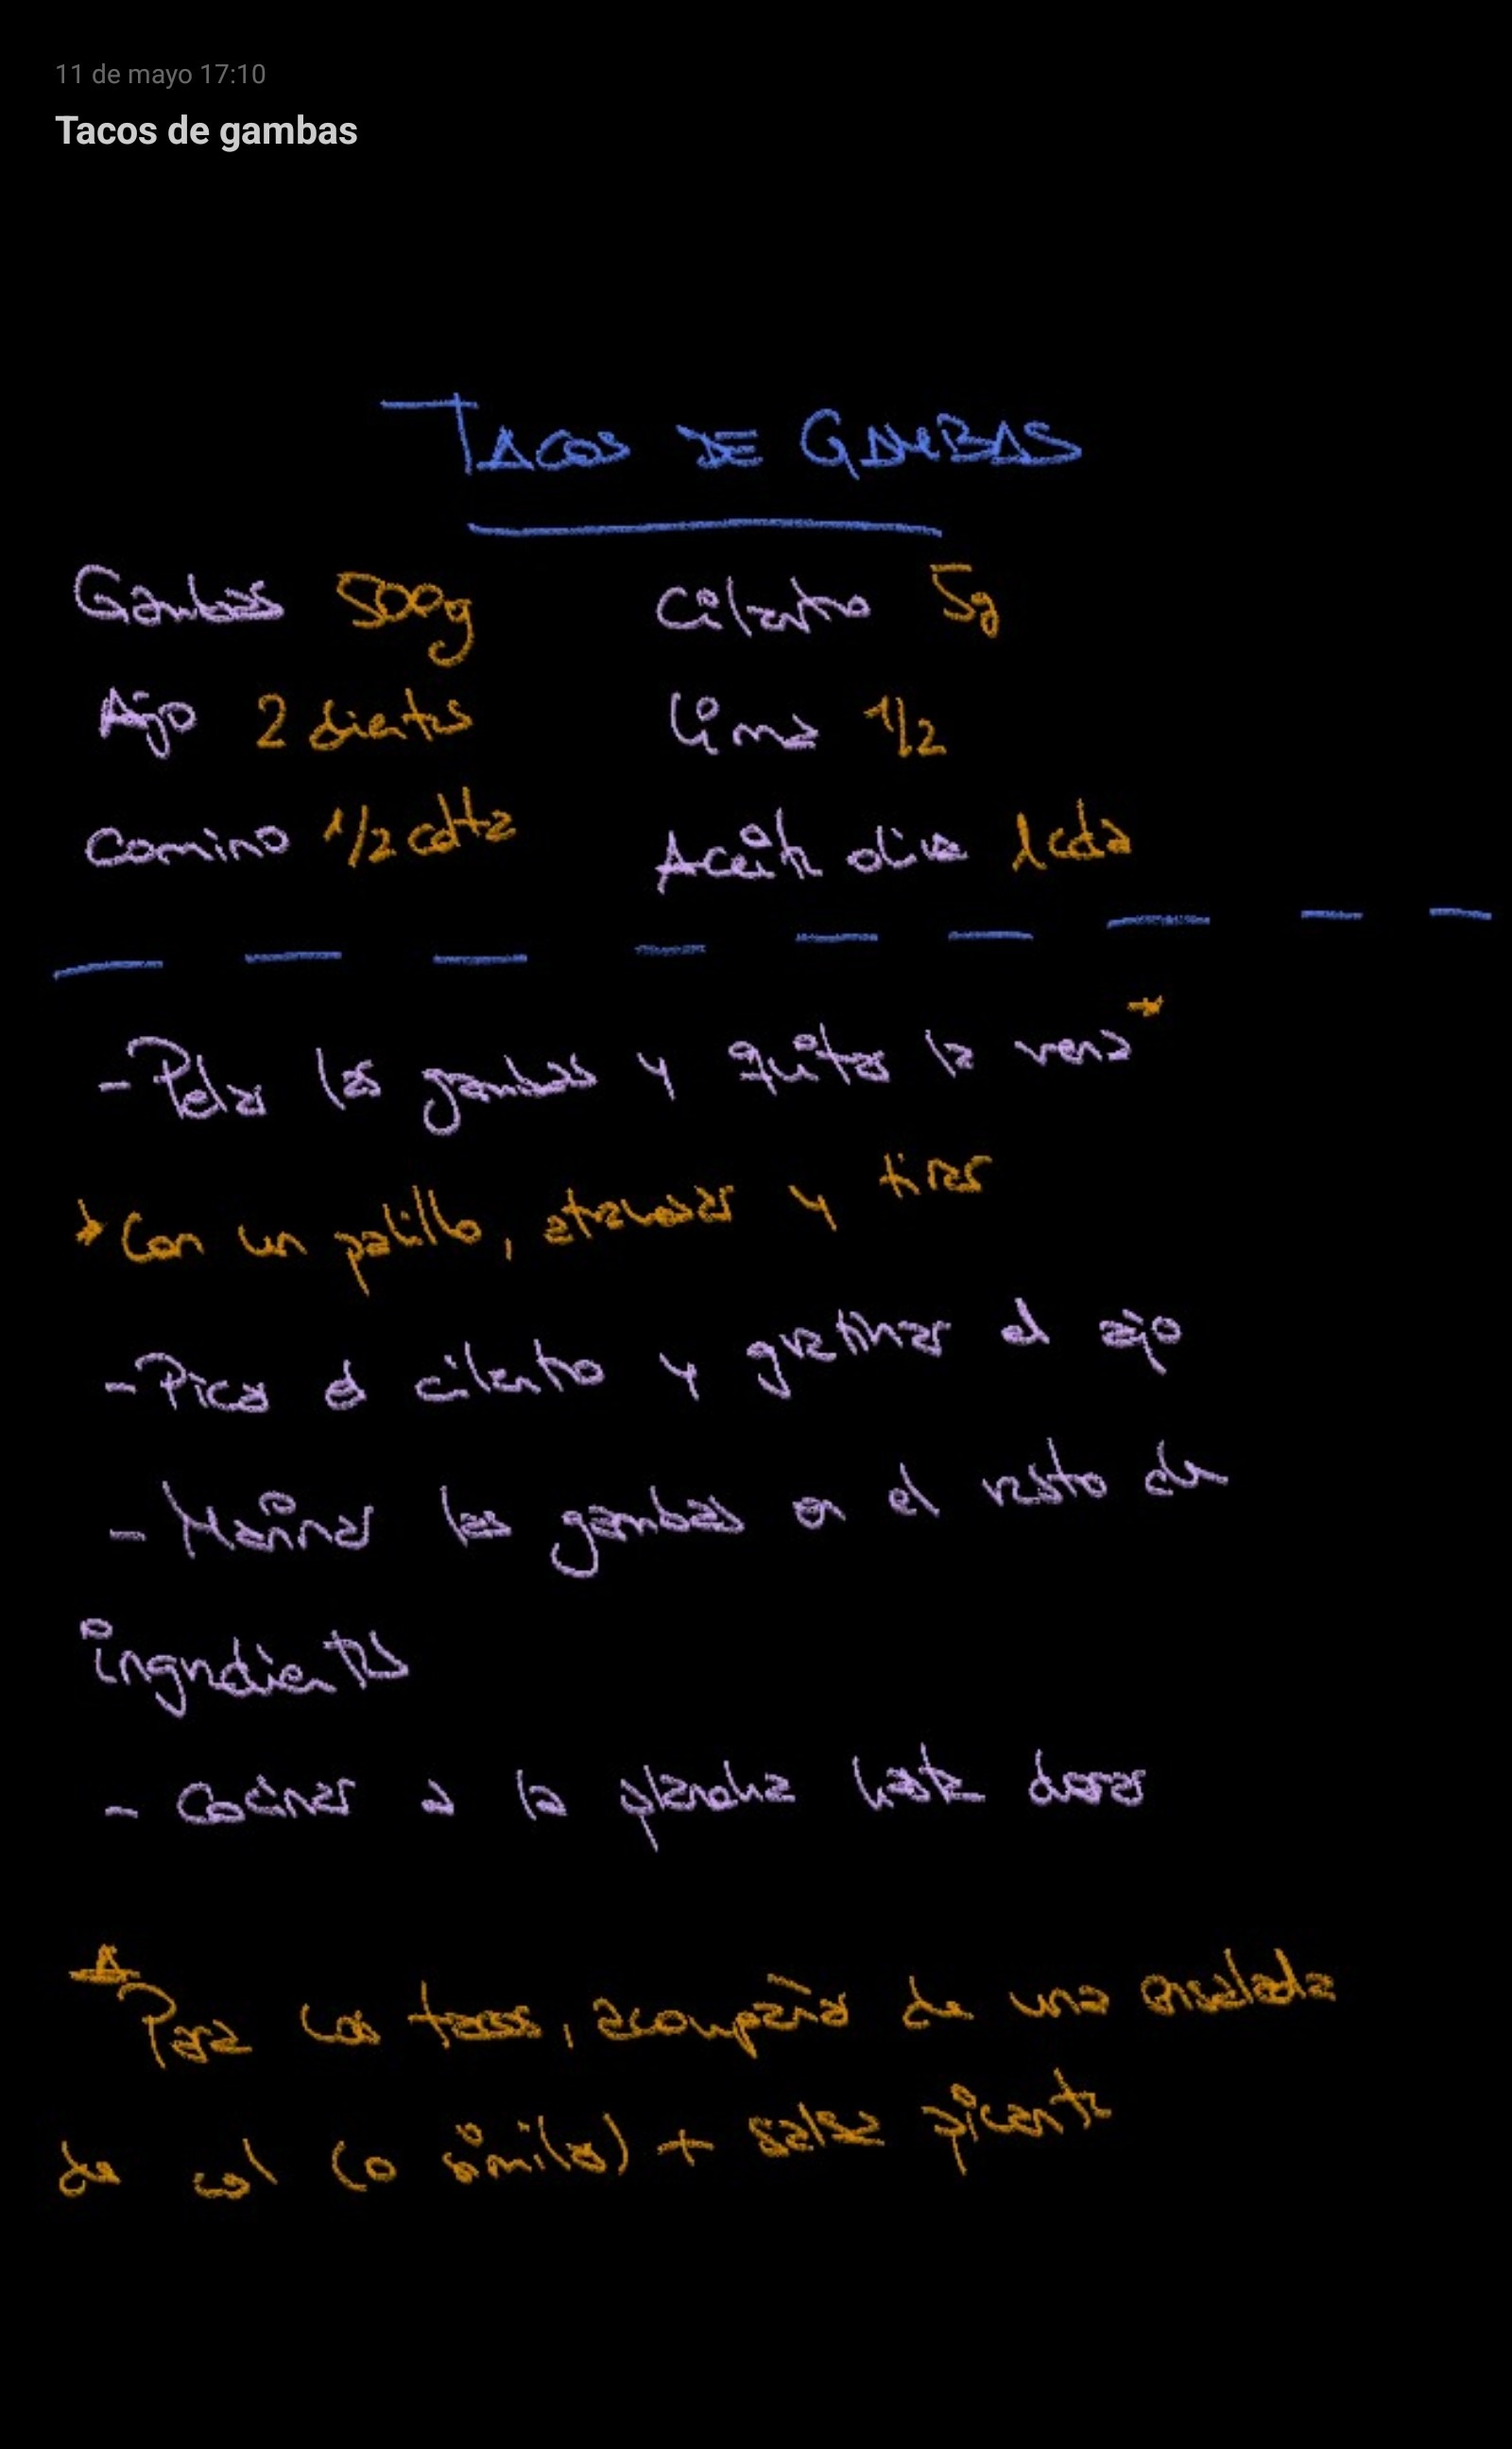 11 de mayo 17:10
Tacos de gambas
TACOS DE GAMBAS
Gambas 500g Cilantro 5g
Ajo 2 dientes Lima 1/2
Comino 1/2 cdtta Aceite oliva 1 cda
- Pelar las gambas y quitar la vena*
* Con un palillo, atravesar y tirar
- Picar el cilantro y gratinar el ajo
- Marinar las gambas en el resto de
ingredientes
- Cocinar a la plancha hasta dorar
* Para los tacos, acompañar de una ensalada
de col (o similar) + salsa picante